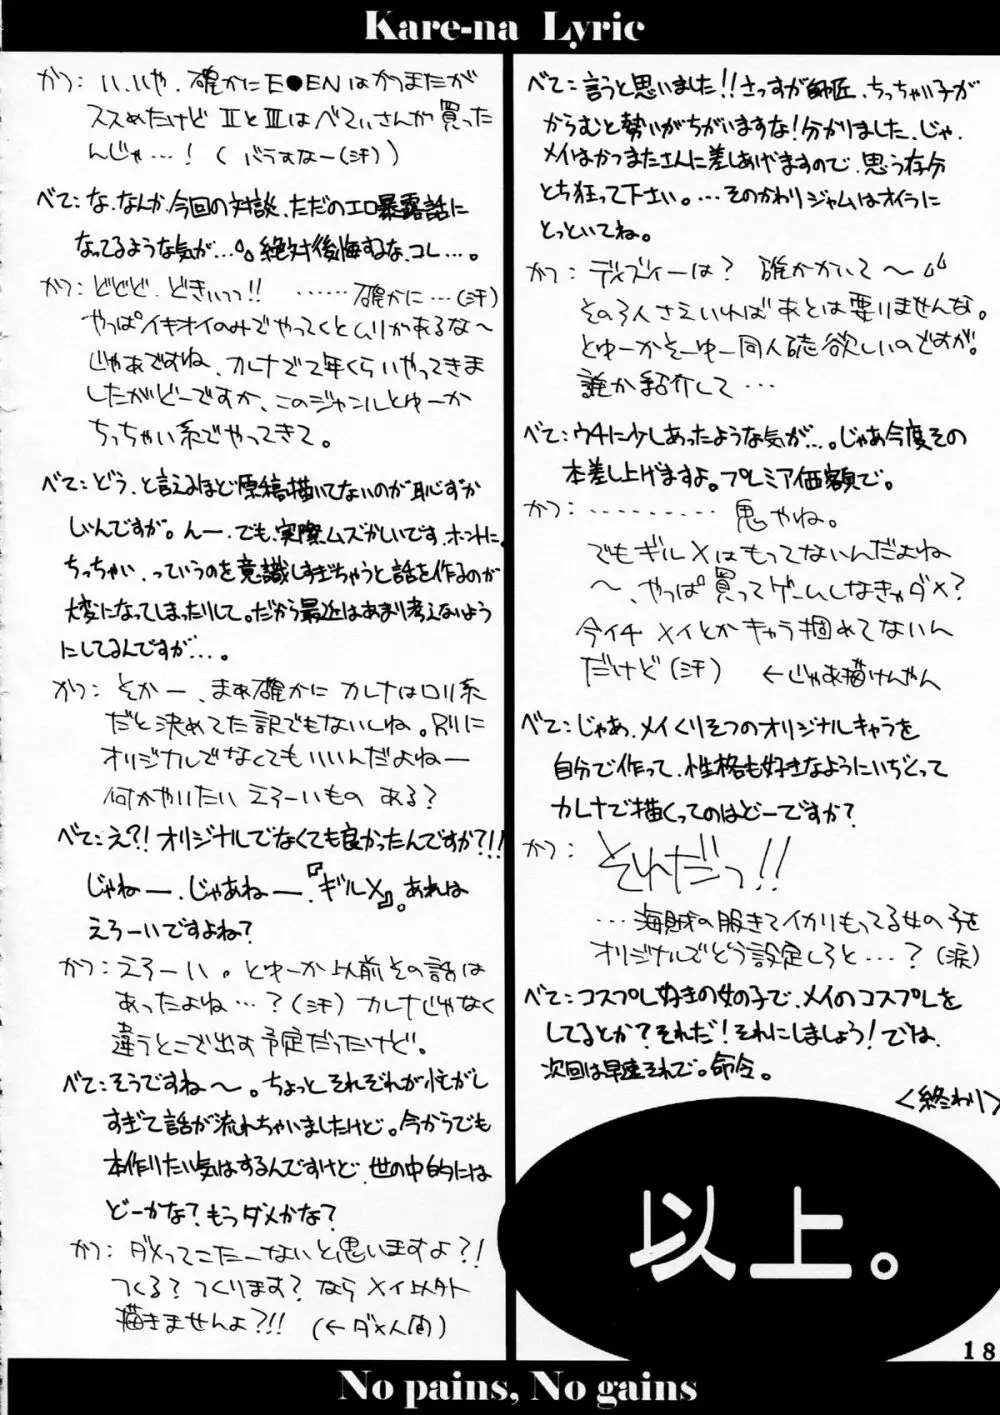 Kare-na Lyric
かつ：い、いや、確かにE●ENはかつまたが
ススめたけどⅡとⅢはべてぃさんが買った
んじゃ…！（バラすなー(汗)）
べて：な、なんか、今回の対談、ただのエロ暴露話に
なってるような気が…。絶対後悔するな、コレ…。
かつ：どどど、どきぃっっ!! ……確かに…(汗)
やっぱイキオイのみでやってくとムリがあるな〜
じゃあですね、カレナで7年くらいやってきま
したがどーですか、このジャンルとゆーか
ちっちゃい系でやってきて。
べて：どう、と言えるほど原稿描いてないのが恥ずか
しいんですが。んー、でも、実際ムズかしいです、ホントに。
ちっちゃい、っていうのを意識しすぎちゃうと話を作るのが
大変になってしまったりして。だから最近はあまり考えないよう
にしてるんですが…。
かつ：そかー、まぁ確かにカレナはロリ系
だと決めてた訳でもないしね。別に
オリジナルでなくてもいいんだよねー
何かやりたいえろーいものある？
べて：え?! オリジナルでなくても良かったんですか?!!
じゃねー、じゃあねー、『ギルX』。あれは
えろーいですよね？
かつ：えろーい。とゆーか以前その話は
あったよね…？(汗)カレナじゃなく
違うとこで出す予定だったけど。
べて：そうですね〜。ちょっとそれぞれが忙がし
すぎて話が流れちゃいましたけど。今からでも
本作りたい気はするんですけど、世の中的には
どーかな？もうダメかな？
かつ：ダメってこたーないと思いますよ?!
つくる？つくります？ならメイ以外
描きませんよ?!!（←ダメ人間）
べて：言うと思いました!!さっすが師匠、ちっちゃい子が
からむと勢いがちがいますな！分かりました、じゃ、
メイはかつまたさんに差しあげますので、思う存分
とち狂って下さい。…そのかわりジャムはオイラに
とっといてね。
かつ：ディズィーは？確かかいて〜
その3人さえいればあとは要りませんな。
とゆーかそーゆー同人誌欲しいのですが。
誰か紹介して…
べて：ウチに少しあったような気が…。じゃあ今度その
本差し上げますよ。プレミア価額で。
かつ：………… 鬼やね。
でもギルXはもってないんだよね
〜、やっぱ買ってゲームしなきゃダメ？
今イチメイとかキャラ掴めてないん
だけど(汗) ←じゃあ描けんやん
べて：じゃあ、メイくりそつのオリジナルキャラを
自分で作って、性格も好きなようにいぢくって
カレナで描くってのはどーですか？
かつ：それだっ!!
…海賊の服きてイカリもってる女の子を
オリジナルでどう設定しろと…？(涙)
べて：コスプレ好きの女の子で、メイのコスプレを
してるとか？それだ！それにしましょう！では、
次回は早速それで。命令。
＜終わり＞
以上。
18
No pains, No gains